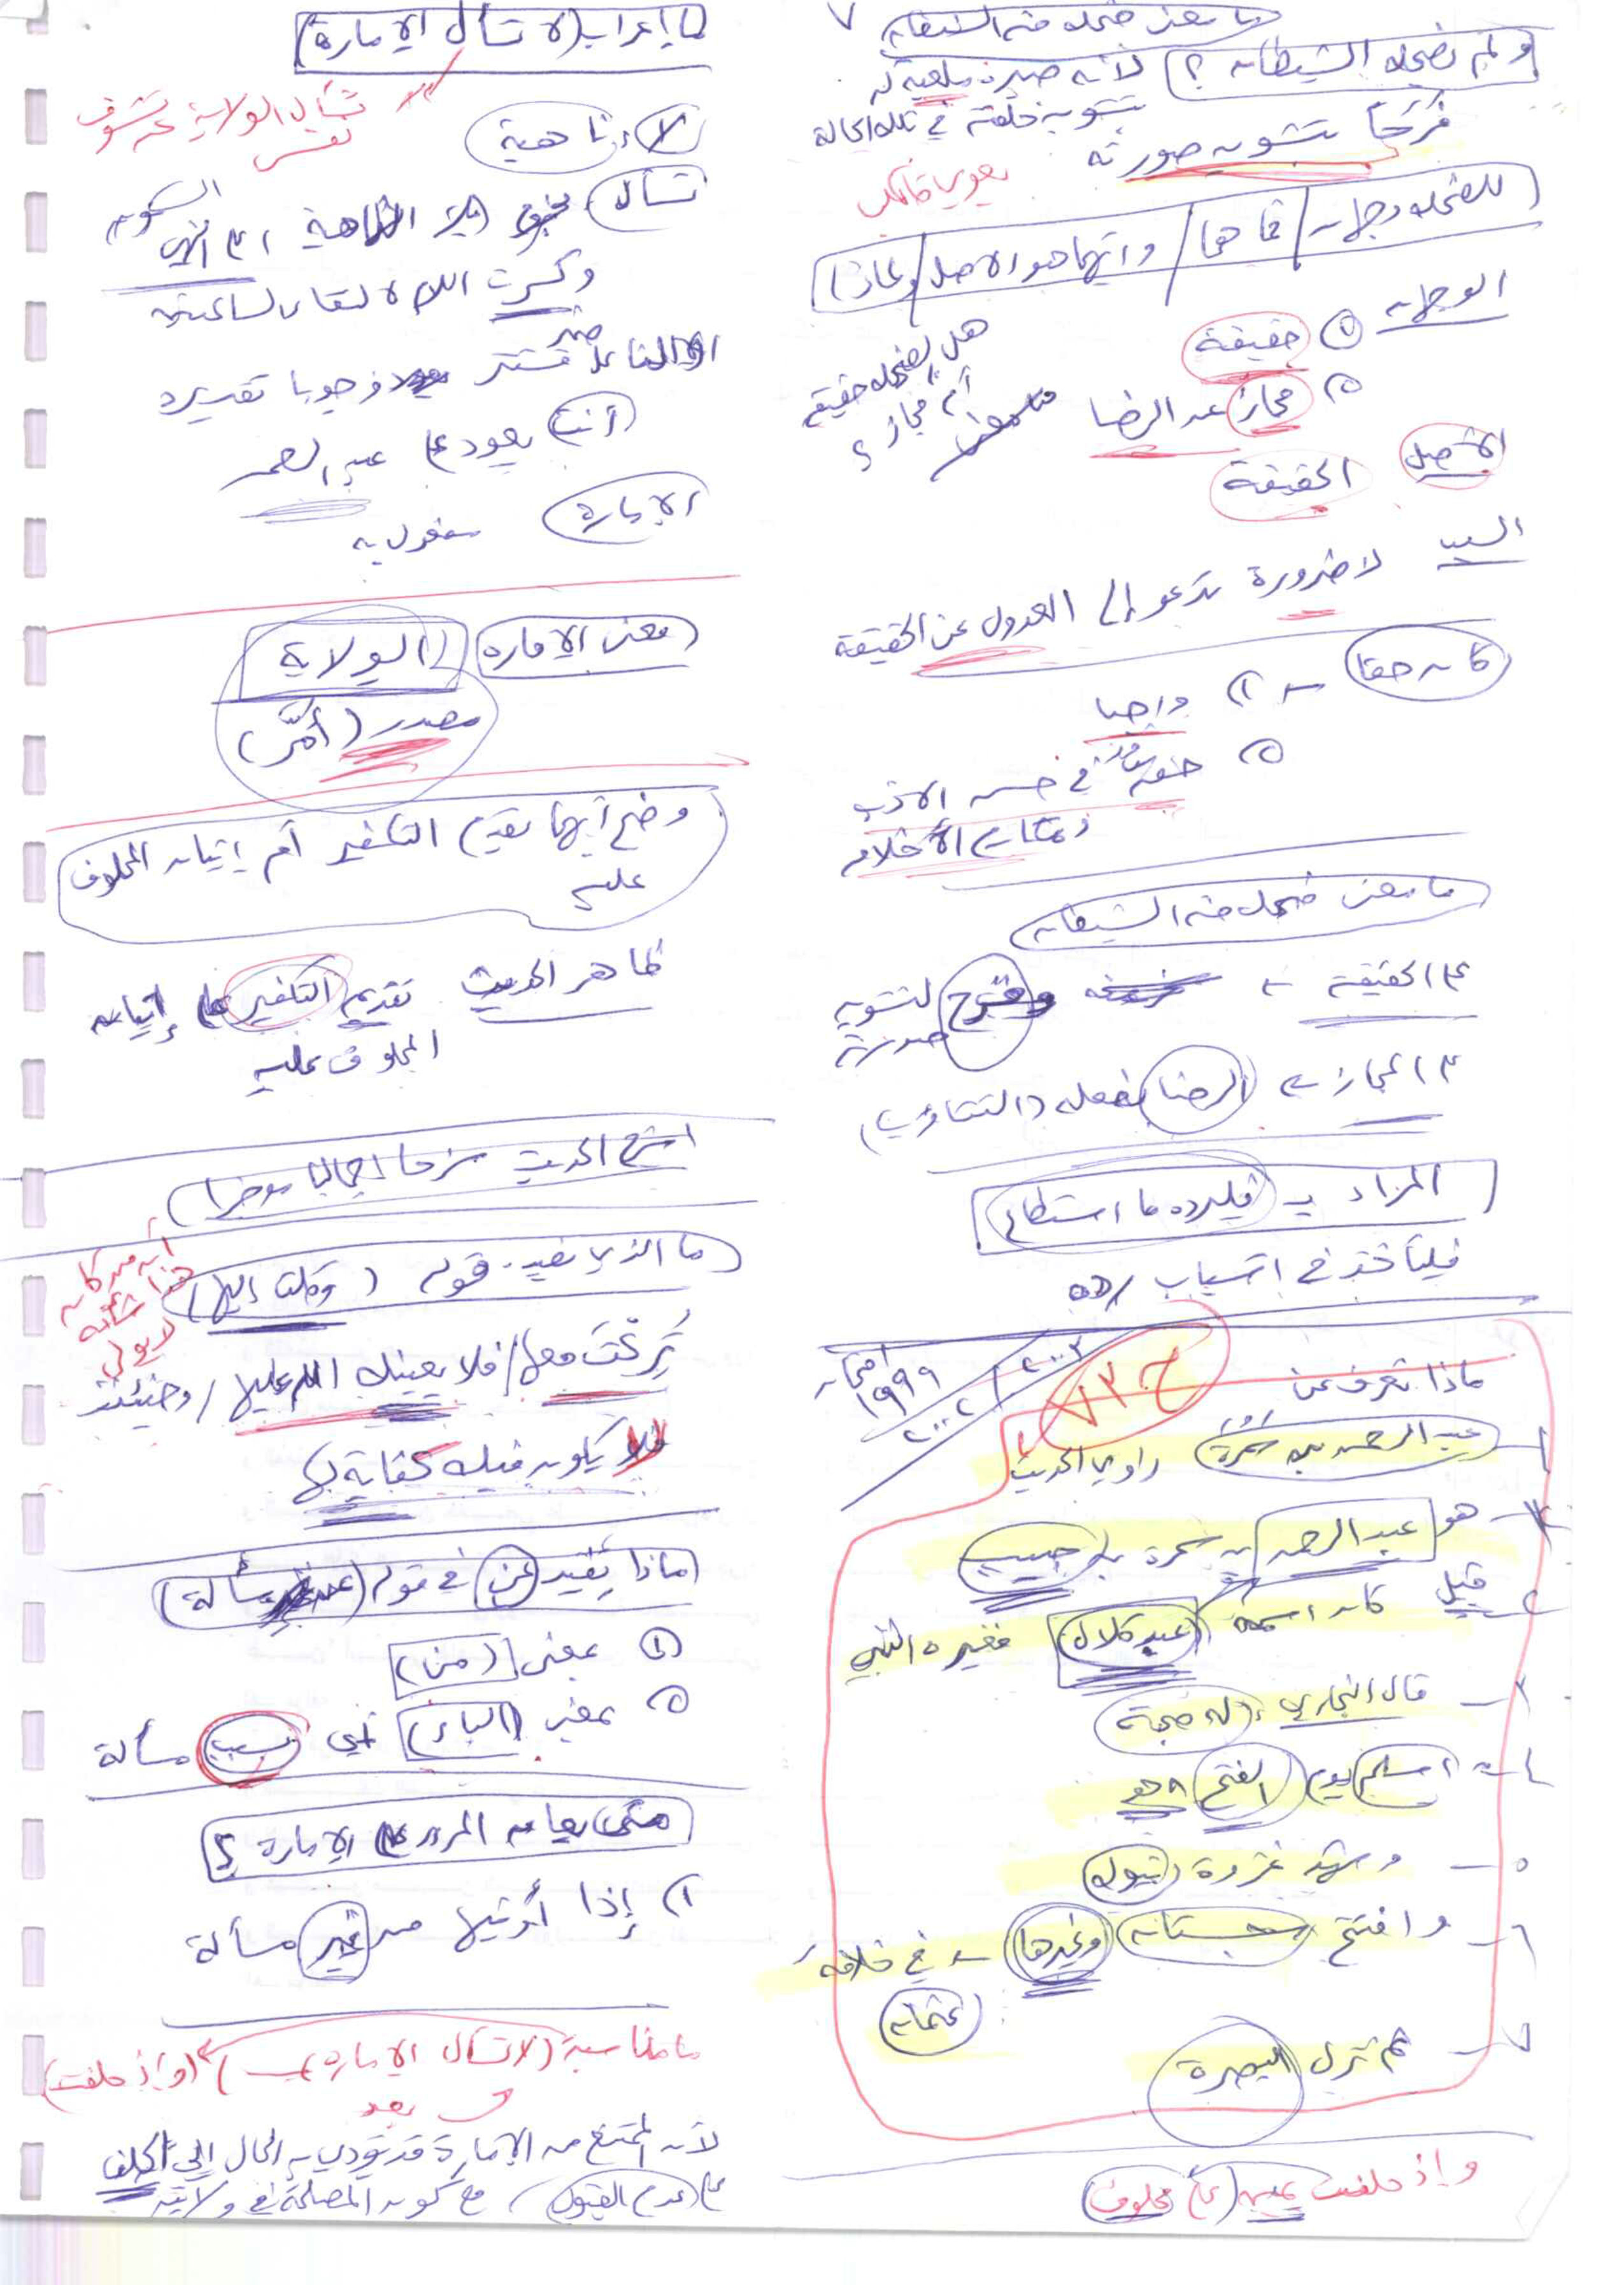 ما معنى ضحك منه الشيطان
ولم يضحك الشيطان ؟ لأنه صيره ملعبة له
بتشويه خلقته في تلك الحالة
فرحاً بتشويه صورته
للضحك وجهان / فما هما / وأيهما هو الأصل / ولماذا
الوجهان ① حقيقة
هل الضحك حقيقة
أم مجاز ؟
② مجاز عن الرضا
الأصل الحقيقة
السبب لا ضرورة تدعو إلى العدول عن الحقيقة
كان حقا ← ١) واجبا
② حقه في حسن الأدب
ومكارم الأخلاق
ما معنى ضحك منه الشيطان
على الحقيقة ← فرح لتشويه
صورته
على المجاز ← الرضا بفعله (التثاؤب)
المراد بـ فليرده ما استطاع
فليأخذ في أسباب رده
امتحان
١٩٩٩ / ٢٠٠٢ / ٢٠٠٣
ح ٧٣
ماذا تعرف عن
عبد الرحمن بن سمرة راوي الحديث
هو عبد الرحمن بن سمرة بن حبيب
قيل كان اسمه عبد كلال فغيره النبي
٣ - قال البخاري : له صحبة
٤ - أسلم يوم الفتح ٨هـ
٥ - وشهد غزوة تبوك
٦ - وافتتح سجستان وغيرها - في خلافة
عثمان
٧ - ثم نزل البصرة
وإذ حلفت يمين (على محلوف)
ما إعراب (لا تسأل الإمارة)
لا ناهية
تسأل مجزوم بلا الناهية السكون
وكسرت اللام لالتقاء الساكنين
الفاعل ضمير مستتر وجوبا تقديره
أنت يعود على عبد الرحمن
الإمارة مفعول به
معنى الإمارة (الولاية)
مصدر (أمّر)
وضح أيهما يقدم التكفير أم إتيان المحلوف
عليه
ظاهر الحديث تقديم التكفير على إتيان
المحلوف عليه
اشرح الحديث شرحا إجماليا موجزا
ما الذي يفيده قوله (وكلت إليها)
أنه من كان
هذا شأنه
لا يولى
تُركت معها / فلا يعينك الله عليها / وحينئذ
فلا يكون فيك كفاية لها
ماذا يفيد عن في قوله (عن مسألة)
① بمعنى (من)
② بمعنى (الباء) أي بسبب مسألة
متى يعان المرء على الإمارة ؟
١) إذا أوتيها من غير مسألة
ما مناسبة (لا تسأل الإمارة) لـ (وإذ حلفت)
بعد
لأن الممتنع من الإمارة قد يؤدي به الحال إلى الحلف
على (عدم القبول) مع كون المصلحة في ولايته